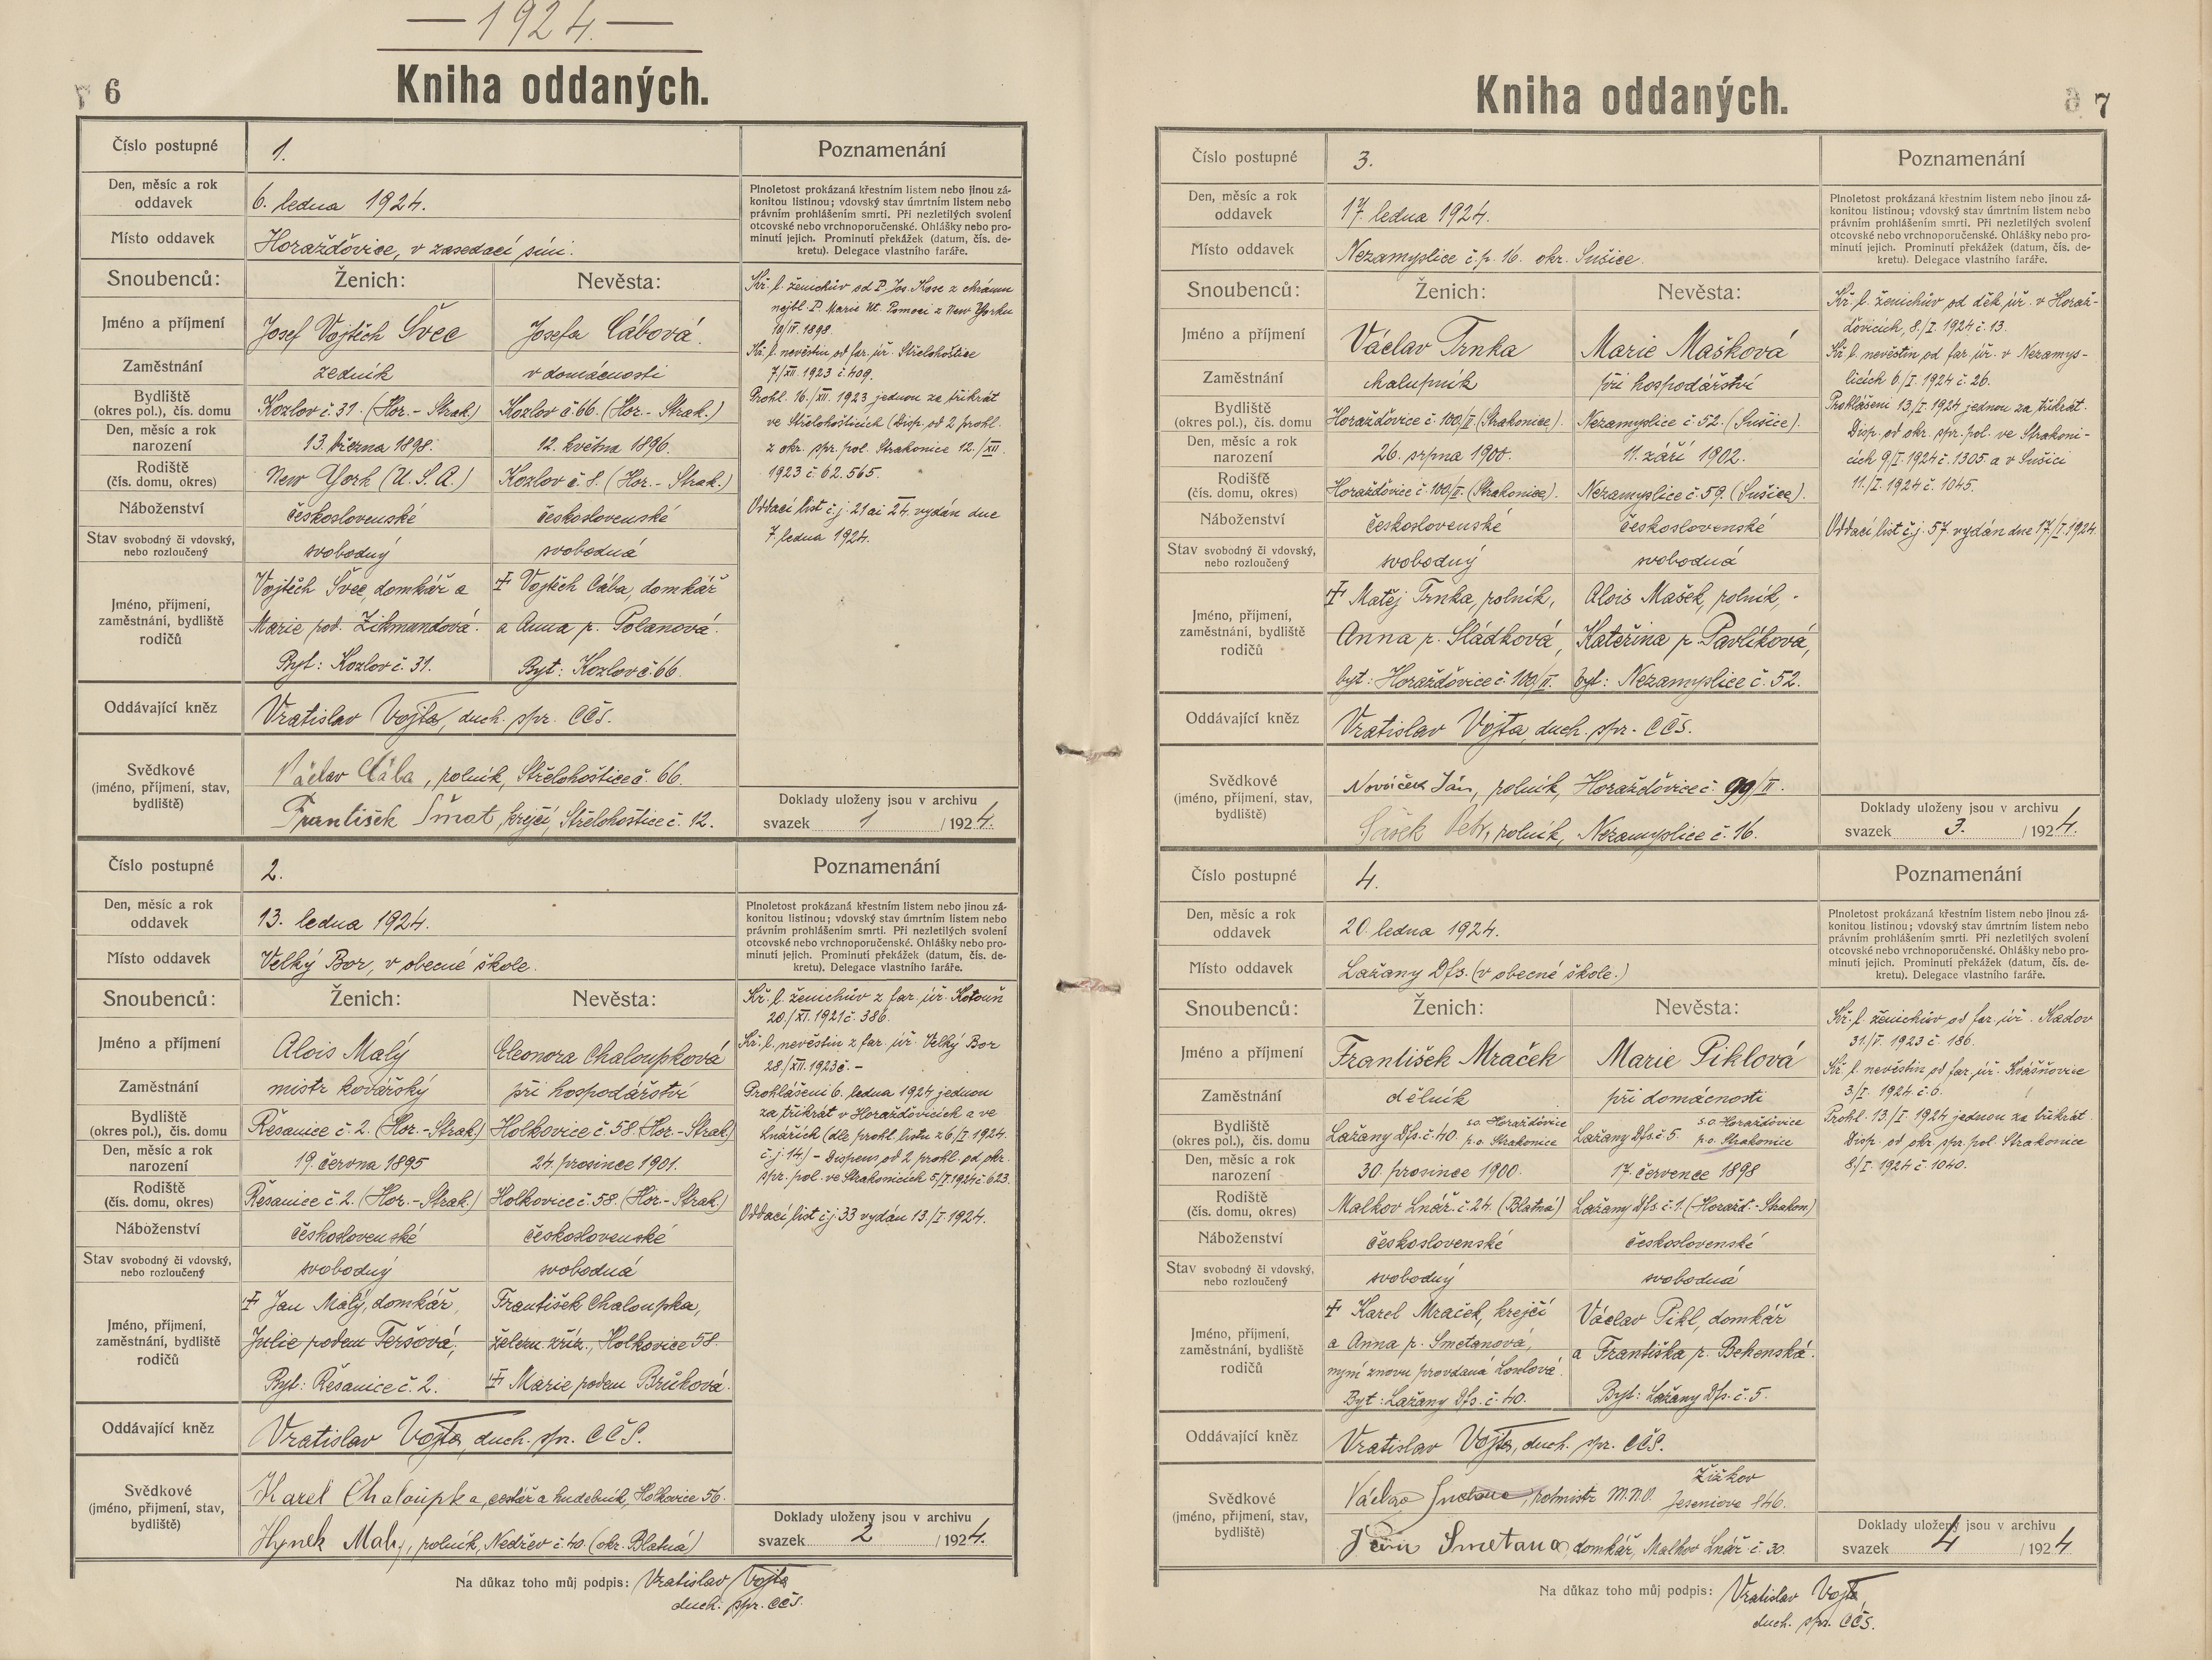 — 1924. —
6
Kniha oddaných.
Číslo postupné 1.
Poznamenání
Den, měsíc a rok oddavek 6. ledna 1924.
Místo oddavek Horažďovice, v zasedací síni.
Plnoletost prokázaná křestním listem nebo jinou zá-
konitou listinou; vdovský stav úmrtním listem nebo
právním prohlášením smrti. Při nezletilých svolení
otcovské nebo vrchnoporučenské. Ohlášky nebo pro-
minutí jejich. Prominutí překážek (datum, čís. de-
kretu). Delegace vlastního faráře.
Snoubenců: Ženich: Nevěsta:
Jméno a příjmení Josef Vojtěch Švec Josefa Cábová.
Zaměstnání zedník v domácnosti
Bydliště (okres pol.), čís. domu Kozlov č. 31. (Hor.-Strak.) Kozlov č. 66. (Hor.-Strak.)
Den, měsíc a rok narození 13. března 1898. 12. května 1896.
Rodiště (čís. domu, okres) New York (U.S.A.) Kozlov č. 8. (Hor.-Strak.)
Náboženství československé československé
Stav svobodný či vdovský, nebo rozloučený svobodný svobodná
Jméno, příjmení, zaměstnání, bydliště rodičů
Vojtěch Švec, domkář a
Marie roz. Zikmundová.
Byt: Kozlov č. 31.
Vojtěch Cába, domkář
a Anna r. Polanová.
Byt: Kozlov č. 66.
Oddávající kněz Vratislav Vojta, duch. spr. CČS.
Svědkové (jméno, příjmení, stav, bydliště)
Václav Cába, rolník, Střelohoštice č. 66.
František Šmat, krejčí, Střelohoštice č. 12.
Kř. l. ženichův od P. Jos. Kose z chrámu
nejbl. P. Marie Vt. Pomoci z New Yorku
10/IV. 1898.
Kř. l. nevěstin od far. úř. Střelohoštice
7/XII. 1923 č. 409.
Prohl. 16./XII. 1923 jednou za třikrát
ve Střelohošticích (Disp. od 2 prohl.
z okr. spr. pol. Strakonice 12./XII.
1923 č. 62.565.
Oddací list č.j. 21 ai 24. vydán dne
7. ledna 1924.
Doklady uloženy jsou v archivu
svazek 1 /1924.
Číslo postupné 2.
Poznamenání
Den, měsíc a rok oddavek 13. ledna 1924.
Místo oddavek Velký Bor, v obecné škole.
Plnoletost prokázaná křestním listem nebo jinou zá-
konitou listinou; vdovský stav úmrtním listem nebo
právním prohlášením smrti. Při nezletilých svolení
otcovské nebo vrchnoporučenské. Ohlášky nebo pro-
minutí jejich. Prominutí překážek (datum, čís. de-
kretu). Delegace vlastního faráře.
Snoubenců: Ženich: Nevěsta:
Jméno a příjmení Alois Malý Eleonora Chaloupková
Zaměstnání mistr kovářský při hospodářství
Bydliště (okres pol.), čís. domu Řesanice č. 2. (Hor.-Strak) Holkovice č. 58. (Hor.-Strak)
Den, měsíc a rok narození 19. června 1895 24. prosince 1901.
Rodiště (čís. domu, okres) Řesanice č. 2. (Hor.-Strak.) Holkovice č. 58. (Hor.-Strak.)
Náboženství československé československé
Stav svobodný či vdovský, nebo rozloučený svobodný svobodná
Jméno, příjmení, zaměstnání, bydliště rodičů
Jan Malý, domkář,
Julie rozen Teršová,
Byt: Řesanice č. 2.
František Chaloupka,
železn. zříz., Holkovice 58.
Marie rozen Brůková.
Oddávající kněz Vratislav Vojta, duch. spr. CČS.
Svědkové (jméno, příjmení, stav, bydliště)
Karel Chaloupka, cestář a hudebník, Holkovice 56.
Hynek Malý, rolník, Nedřev č. 40. (okr. Blatná)
Kř. l. ženichův z far. úř. Kotouň
20./XI. 1921 č. 386.
Kř. l. nevěstin z far. úř. Velký Bor
28./XII. 1923 č. -
Prohlášeni 6. ledna 1924 jednou
za třikrát v Horažďovicích a ve
Lnářích (dle prohl. listu z 6/I. 1924.
č.j. 14.) - Dispens od 2 prohl. od okr.
spr. pol. ve Strakonicích 5/I. 1924 č. 623.
Oddací list č.j. 33 vydán 13./I. 1924.
Doklady uloženy jsou v archivu
svazek 2 /1924.
Na důkaz toho můj podpis: Vratislav Vojta
duch. spr. CČS.
7
Kniha oddaných.
Číslo postupné 3.
Poznamenání
Den, měsíc a rok oddavek 17. ledna 1924.
Místo oddavek Nezamyslice č.p. 16. okr. Sušice.
Plnoletost prokázaná křestním listem nebo jinou zá-
konitou listinou; vdovský stav úmrtním listem nebo
právním prohlášením smrti. Při nezletilých svolení
otcovské nebo vrchnoporučenské. Ohlášky nebo pro-
minutí jejich. Prominutí překážek (datum, čís. de-
kretu). Delegace vlastního faráře.
Snoubenců: Ženich: Nevěsta:
Jméno a příjmení Václav Trnka Marie Mašková
Zaměstnání chalupník při hospodářství
Bydliště (okres pol.), čís. domu Horažďovice č. 100/II. (Strakonice). Nezamyslice č. 52. (Sušice).
Den, měsíc a rok narození 26. srpna 1900. 11. září 1902.
Rodiště (čís. domu, okres) Horažďovice č. 100/II. (Strakonice). Nezamyslice č. 59. (Sušice).
Náboženství československé československé
Stav svobodný či vdovský, nebo rozloučený svobodný svobodná
Jméno, příjmení, zaměstnání, bydliště rodičů
Matěj Trnka, rolník,
Anna r. Sládková,
byt: Horažďovice č. 100/II.
Alois Mašek, rolník,
Kateřina r. Pavlíková,
byt: Nezamyslice č. 52.
Oddávající kněz Vratislav Vojta, duch. spr. CČS.
Svědkové (jméno, příjmení, stav, bydliště)
Nováček Ján, rolník, Horažďovice č. 99/II.
Šašek Petr, rolník, Nezamyslice č. 16.
Kř. l. ženichův od děk. úř. v Horaž-
ďovicích, 8./I. 1924 č. 13.
Kř. l. nevěstin od far. úř. v Nezamys-
licích 6./I. 1924 č. 26.
Prohlášeni 13./I. 1924 jednou za třikrát.
Disp. od okr. spr. pol. ve Strakoni-
cích 9/I. 1924 č. 1305. a v Sušici
11./I. 1924 č. 1045.
Oddací list č.j. 57. vydán dne 17./I. 1924.
Doklady uloženy jsou v archivu
svazek 3. /1924.
Číslo postupné 4.
Poznamenání
Den, měsíc a rok oddavek 20. ledna 1924.
Místo oddavek Lažany Dfs. (v obecné škole.)
Plnoletost prokázaná křestním listem nebo jinou zá-
konitou listinou; vdovský stav úmrtním listem nebo
právním prohlášením smrti. Při nezletilých svolení
otcovské nebo vrchnoporučenské. Ohlášky nebo pro-
minutí jejich. Prominutí překážek (datum, čís. de-
kretu). Delegace vlastního faráře.
Snoubenců: Ženich: Nevěsta:
Jméno a příjmení František Mraček Marie Piklová
Zaměstnání dělník při domácnosti
Bydliště (okres pol.), čís. domu Lažany Dfs. č. 40. s.o. Horažďovice p.o. Strakonice Lažany Dfs. č. 5. s.o. Horažďovice p.o. Strakonice
Den, měsíc a rok narození 30. prosince 1900. 17. července 1898
Rodiště (čís. domu, okres) Malkov Lnář. č. 24. (Blatná) Lažany Dfs. č. 1. (Horažď.-Strakon)
Náboženství československé československé
Stav svobodný či vdovský, nebo rozloučený svobodný svobodná
Jméno, příjmení, zaměstnání, bydliště rodičů
Karel Mraček, krejčí
a Anna r. Smetanová,
nyní znovu provdaná
Byt: Lažany Dfs. č. 40.
Václav Pikl, domkář
a Františka r. Bekenská.
Byt: Lažany Dfs. č. 5.
Oddávající kněz Vratislav Vojta, duch. spr. CČS.
Svědkové (jméno, příjmení, stav, bydliště)
Václav Smetana, rotmistr M.N.O. Žižkov Jeseniova 146.
Jan Smetana domkář, Malkov Lnář. č. 30.
Kř. l. ženichův od far. úř. Kadov
31./V. 1923 č. 186.
Kř. l. nevěstin od far. úř. Kvášňovice
3/I. 1924 č. 6.
Prohl. 13./I. 1924 jednou za třikrát.
Disp. od okr. spr. pol. Strakonice
8/I. 1924 č. 1040.
Doklady uloženy jsou v archivu
svazek 4 /1924
Na důkaz toho můj podpis: Vratislav Vojta,
duch. spr. CČS.